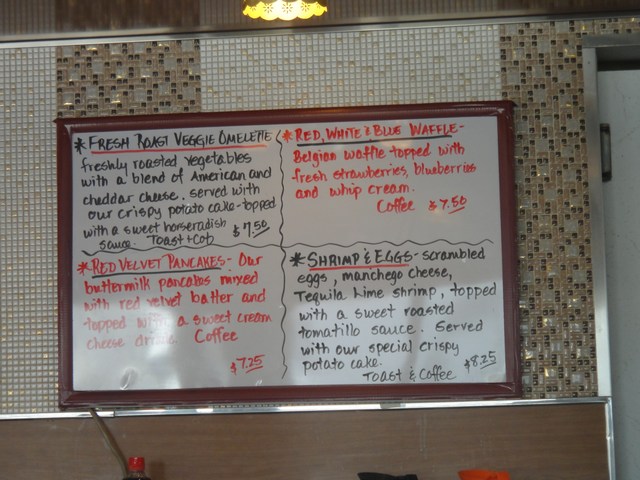 * FRESH ROAST VEGGIE OMELETTE
freshly roasted vegetables
with a blend of American and
cheddar cheese. served with
our crispy potato cake-topped
with a sweet horseradish
sauce. Toast + Cof $7.50
* RED, WHITE & BLUE WAFFLE-
Belgian waffle topped with
fresh strawberries, blueberries
and whip cream.
Coffee $7.50
* RED VELVET PANCAKES- Our
buttermilk pancakes mixed
with red velvet batter and
topped with a sweet cream
cheese drizzle. Coffee
$7.25
* SHRIMP & EGGS- scrambled
eggs, manchego cheese,
Tequila Lime shrimp, topped
with a sweet roasted
tomatillo sauce. Served
with our special crispy
potato cake.
Toast & Coffee $8.25